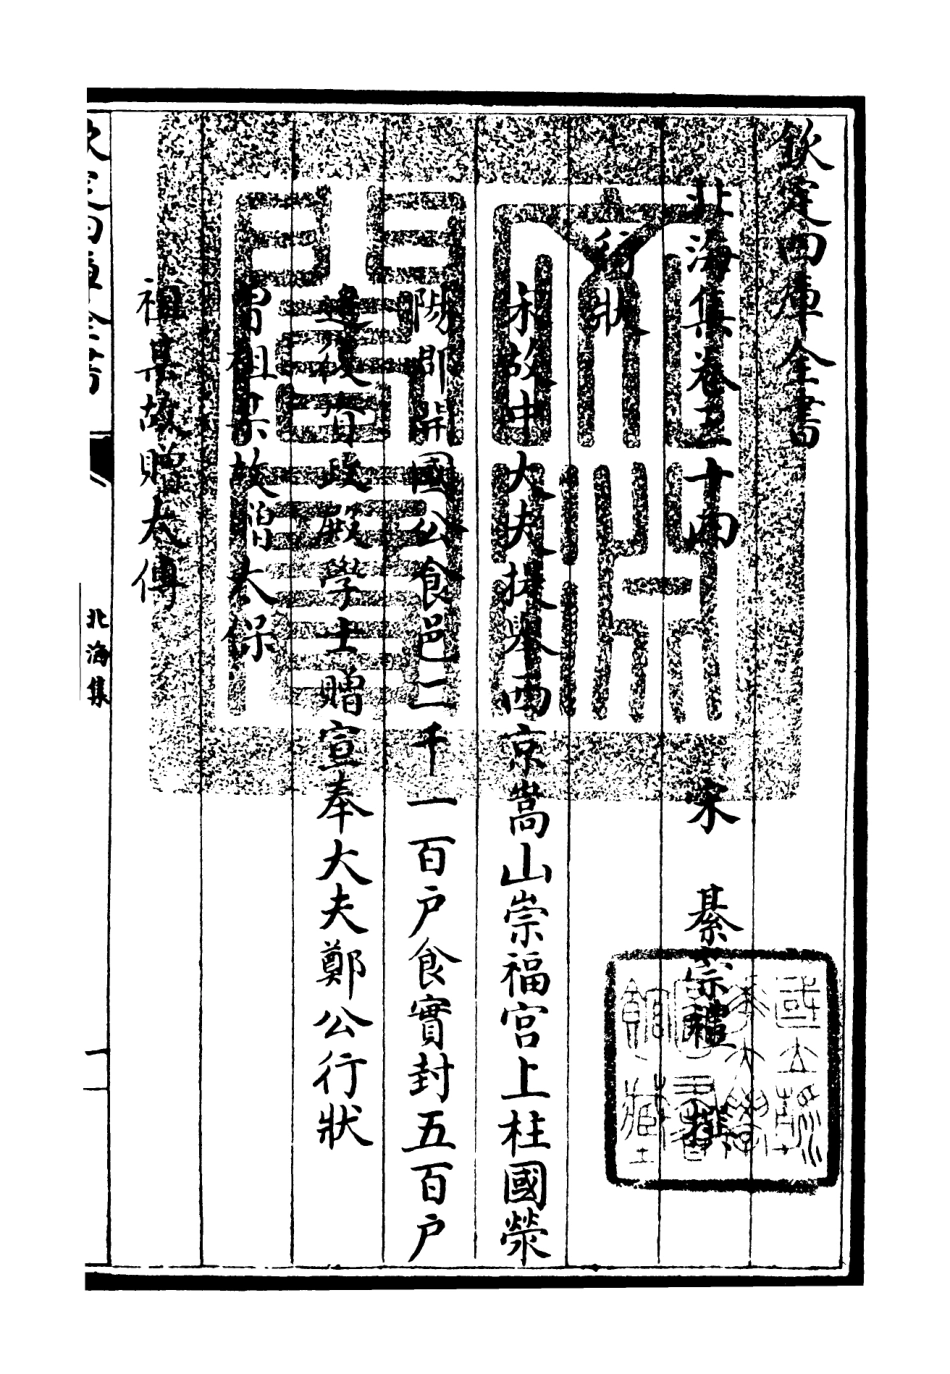 欽定四庫全書
北海集卷三十四 宋 綦崇禮 撰
行狀
宋故中大夫提舉西京嵩山崇福宮上柱國滎
陽郡開國公食邑二千一百户食實封五百户
追復資政殿學士贈宣奉大夫鄭公行狀
曾祖某故贈太保
祖某故贈太傅
欽定四庫全書
北海集
一
國立浙
江大學
圖書
館藏